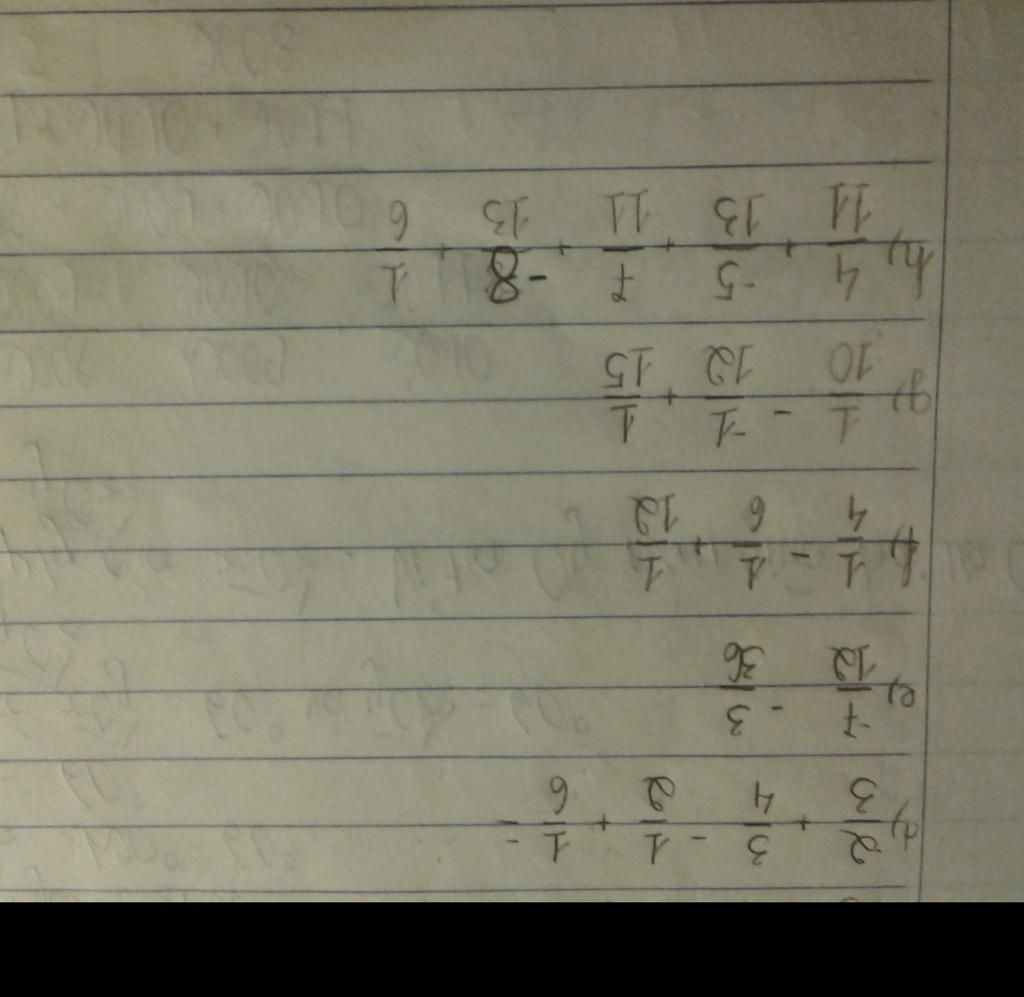 d) 2/3 + 3/4 - 1/2 + 1/6 -
e) 7/12 - 3/36
f) 1/4 - 1/6 + 1/12
g) 1/10 - -1/12 + 1/15
h) 4/11 + -5/13 + 7/11 + -8/13 + 1/6